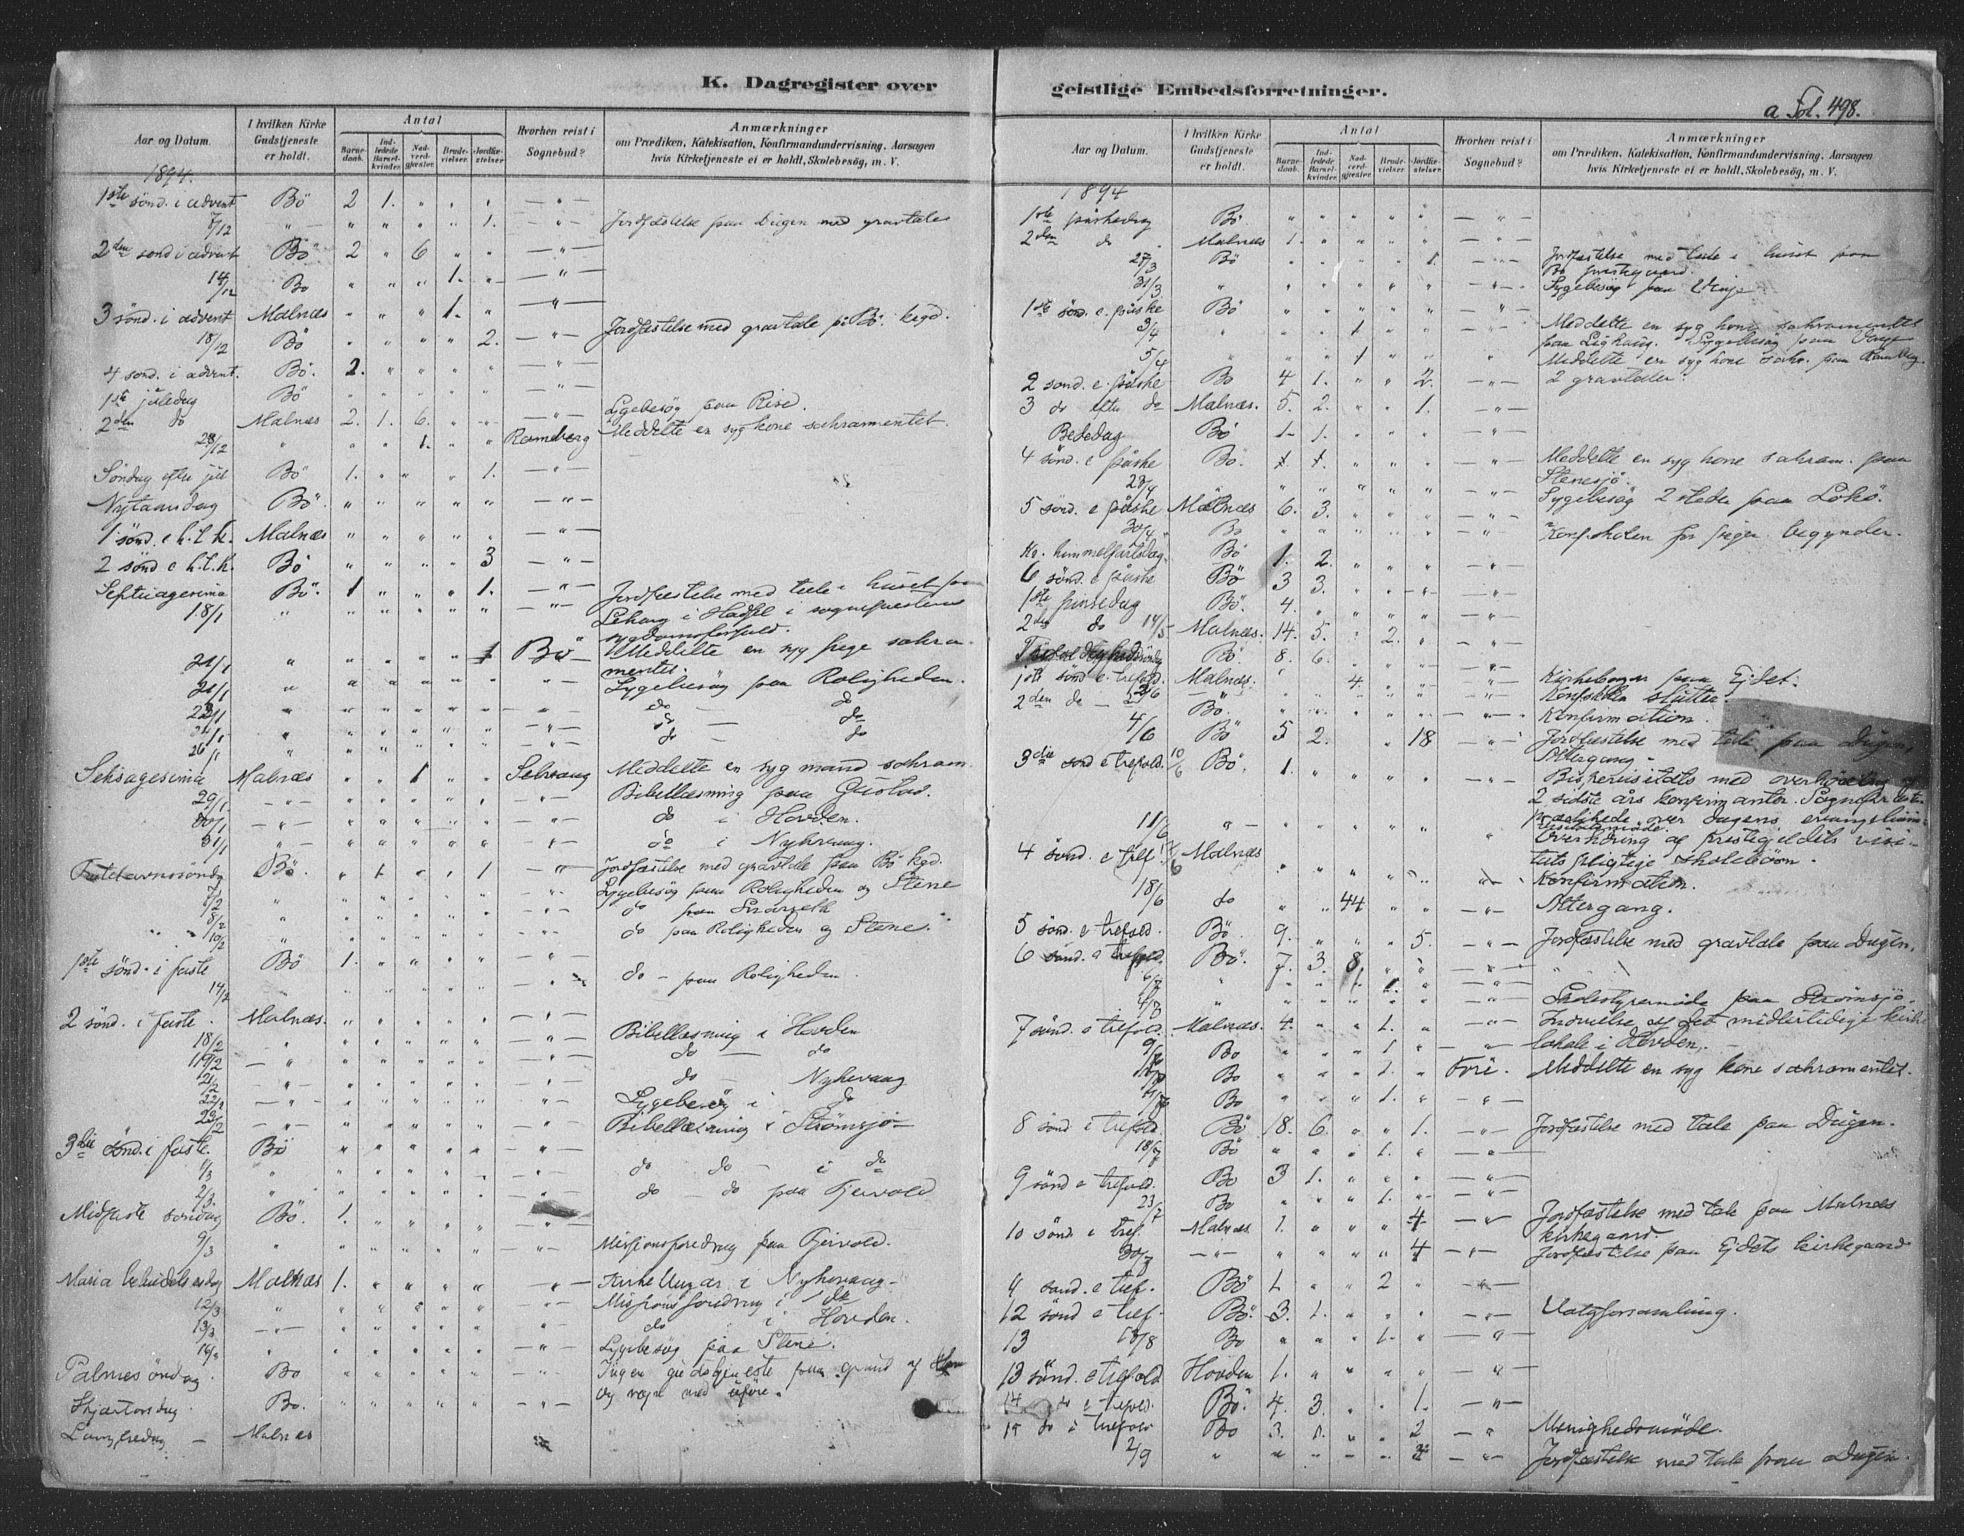 K. Dagregister over
Aar og Datum.
I hvilken Kirke Gudstjeneste er holdt.
Antal
Barnedaab.
Indledede Barselkvinder.
Nadverdgjester.
Brudevielser.
Jordfæstelser.
Hvorhen reist i Sognebud?
Anmærkninger
om Prædiken, Katekisation, Konfirmandundervisning, Aarsagen hvis Kirketjeneste ei er holdt, Skolebesøg, m. V.
1894.
1ste sønd. i advent Bö 2 1. " " " — " —
7/12 " — " " " " 1. " Jordfæstelse paa Dügen med gravtale
2den sønd i advent Bö 2 " 6 " " — " —
14/12 Bö " " " 1. " — " —
3 sønd. i advent Malnæs " " " 1. " — " —
18/12 Bö " " " " 2. — " — Jordfæstelse med gravtale på Bö kgd.
4 sønd. i advent. Bö. 2. " " " " — " —
1ste juledag Bö " " " " " — " —
2den do Malnæs 2. 1. 6. " " — " — Sygebesög paa Rise.
28/12 " " " 1. " " Ramberg Meddelte en syg kone sakramentet.
Søndag efter jul Bö 1. " " " 1. — " —
Nytaarsdag Bö. " " " " " — " —
1 sønd e h. t. k. Malnæs " " " " " — " —
2 sønd e h. t. k. Bö " " " " 3 — " —
Septuagesima Bö. 1 " " " 1. — " — Jordfæstelse med tale i huset
18/1 " " " " " " — " — i Hadsel i sognepræstens
sygdomsforfald.
21/1 " " " " " 1 Bö — Meddelte en syg sakra-
mentet.
21/1 " " " " " " — " — Sygebesög paa Roligheden.
22/1 " " " " " " — " — do — do
24/1 " " " " " " — " — do — do
26/1 " " " " " " — " — do — do
Seksagesima Malnæs " " 1 " " Selvaag Meddelte en syg mand sakram.
29/1 — " — " " " " " — " — Bibellæsning paa Gustad.
30/1 — " — " " " " " — " — do i Hovden.
31/1 — " — " " " " " — " — do i Nykvaag.
Fastelavnssöndag Bö " 1 " " 1 — " — Jordfæstelse med gravtale paa Bö kgd.
7/2 " " " " " " — " — Sygebesög paa Roligheden og Stene
8/2 " " " " " " — " — do paa
10/2 " " " " " " — " — do paa Roligheden og Stene.
1ste sønd. i faste Bö 1. " " " " — " —
14/2 " " " " " " — " — do — paa Roligheden.
2 sønd. i faste. Malnæs. " " " " " — " —
18/2 " " " " " " — " — Bibellæsning i Hovden
19/2 — " " " " " " — " — do — do
21/2 — " — " " " " " — " — do — Nykvaag
22/2 — " — " " " " " — " — Sygebesög i do
23/2 — " — " " " " " — " — Bibellæsning i Strömsjö
3die sønd. i faste. Bö " " " " " — " —
1/3 " " " " " " — " — do do — i do
2/3. " " " " " " — " — do — do paa Fjervold
Midfaste søndag Bö. 1. " " " " — " —
9/3 " " " " " " — " — Missionsforedrag paa Fjervold.
Maria bebudelsesdag Malnæs 1. " " " " — " — i Nykvaag
12/3 " " " " " " — " — Missionsforedrag i do
13/3 — " — " " " " " — " — do " i Hovden.
" " " " " " — " — Sygebesög paa Stene.
Palmesöndag. Bö " " " " " — " — Ingen gudstjeneste paa grund af
og med uföre.
Skjærtorsdag. Bö. " " " " " — " —
Langfredag — Malnæs
geistlige Embedsforretninger.
a Fol. 498.
Aar og Datum.
I hvilken Kirke Gudstjeneste er holdt.
Antal
Barnedaab.
Indledede Barselkvinder.
Nadverdgjester.
Brudevielser.
Jordfæstelser.
Hvorhen reist i Sognebud?
Anmærkninger
om Prædiken, Katekisation, Konfirmandundervisning, Aarsagen hvis Kirketjeneste ei er holdt, Skolebesøg, m. V.
1894
1ste påskedag Bö. " " " " " — " —
2den do. Malnæs 1. " " " " — " —
27/3 Bö " " " " 1. — " — Jordfæstelse med tale i huset paa
Bö prestegaard.
31/3 " " " " " " — " — Sygebesög paa Vinje
1ste sønd. e. påske Bö " " " " " — " —
3/4 " " " 1 " " — " — Meddelte en syg kone sakramentet
paa Lighus. Sygebesög paa Vinje
5/4 " " " 1 " " — " — Meddelte en syg kone sakr. paa Ramberg.
2 sønd. e. påske Bö 4 1. " " 2. — " — 2 gravtaler.
3 do efter do Malnæs. 5. 2. " " 1. — " —
Bededag Bö 1. 1. " " " — " —
4 sønd. e påske Bö. 1. 1. " " " — " — Meddelte en syg kone sakram. paa
Stenesjö.
28/4 " " " " " " — " — Sygebesög 2 steder paa Lokö.
5 sønd. e påske Malnæs 6. 3. " " " — " —
30/4 Bö " " " " " — " — Konfskolen for piger begynder.
Kr. himmelfartsdag. Bö 1. 2. " " " — " —
6 sønd. e påske Bö 3 3. " " " — " —
1ste pinsedag Bö. 4. " " " " — " —
2den do 14/5 Malnæs. 14. 5. " 2. " — " —
Trefoldighedssöndag Bö. 8. 6. " " " — " —
1ste sønd e. trefold. Malnæs. " " 4 " " — " — paa Ejdet.
Konfskolen slutter.
2den do — Bö. " " " " " — " — Konfirmation.
4/6 Bö 5 2. " " 18 — " — Jordfæstelse med tale paa Dügen,
Altergang.
3die sønd e trefold. 10/6 Bö. 1. " " " " — " — Bispevisitats med overhöring af
2 sidste års konfirmanter. Sognepresten
prædikede over dagens evangelium.
Visitatsmøde.
11/6 " — " " " " " " Overhöring af prestegjeldets visi-
tatspligtige skolebörn.
4 sønd. e tref. 17/6 Malnæs " " " " " — " — Konfirmation.
18/6 do " " 44 " " — " — Altergang.
5 sønd. e trefold. Bö. 9. " " " 5. — " — Jordfæstelse med gravtale paa Dügen.
6 sønd. e trefold. Bö. 7. 3. 8. " " — " —
6/7 " " " " 1. " — " —
" " " " " " — " — Skolestyremöde paa Strömsjö.
7 sønd. e trefold. Malnæs. 4. " " 1. " — " — Indvielse af det midlertidige kirke-
lokale i Hovden.
9/7 Bö " " " 1 " — " —
Bö " " " 1. " Föri. Meddelte en syg kone sakramentet.
Bö " " " 1. " — " —
8 sønd e trefold. Bö 18. 6. " " 1. — " — Jordfæstelse med tale paa Dügen.
18/7 Bö " " " 1. " — " —
9 sønd e trefold. Bö 3 1. " " " — " —
23/7 Bö " " " 1. " — " —
10 sønd. e tref. Malnæs 1. " " " 4 — " — Jordfæstelse med tale paa Malnæs
kirkegaard.
30/7 — " — " " " " 4 — " — Jordfæstelse paa Ejdets kirkegaard
11 sønd. e tref. Bö 1. " " 2 " — " —
12 sønd e tref. Bö. 3. 1. " " " — " — Valgforsamlung.
13 Bö " " " 1. " — " —
13 sønd. e trefold Hovden 1. " " " " — " —
14 do e trefold. Bö. 4. 3. " " 1. — " —
15 do e trefold Bö 3. 1. " " 2 — " Menighedsmöde.
2/9 " " " " " — " — Jordfæstelse med tale paa Dügen.